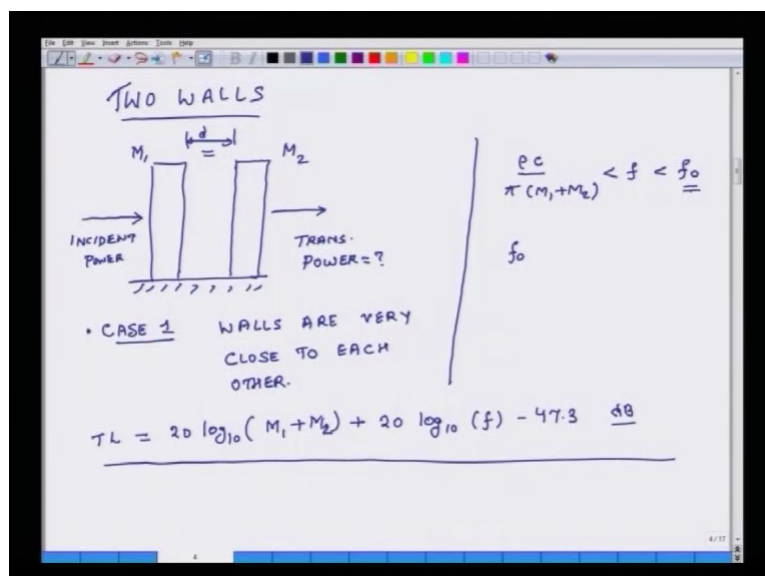 File Edit View Insert Actions Tools Help
TWO WALLS
d
M₁ = M₂
INCIDENT POWER
TRANS. POWER = ?
• CASE 1 WALLS ARE VERY
CLOSE TO EACH
OTHER.
ρc / π(M₁+M₂) < f < f₀
f₀
TL = 20 log₁₀(M₁+M₂) + 20 log₁₀(f) - 47.3 dB
4/17
4